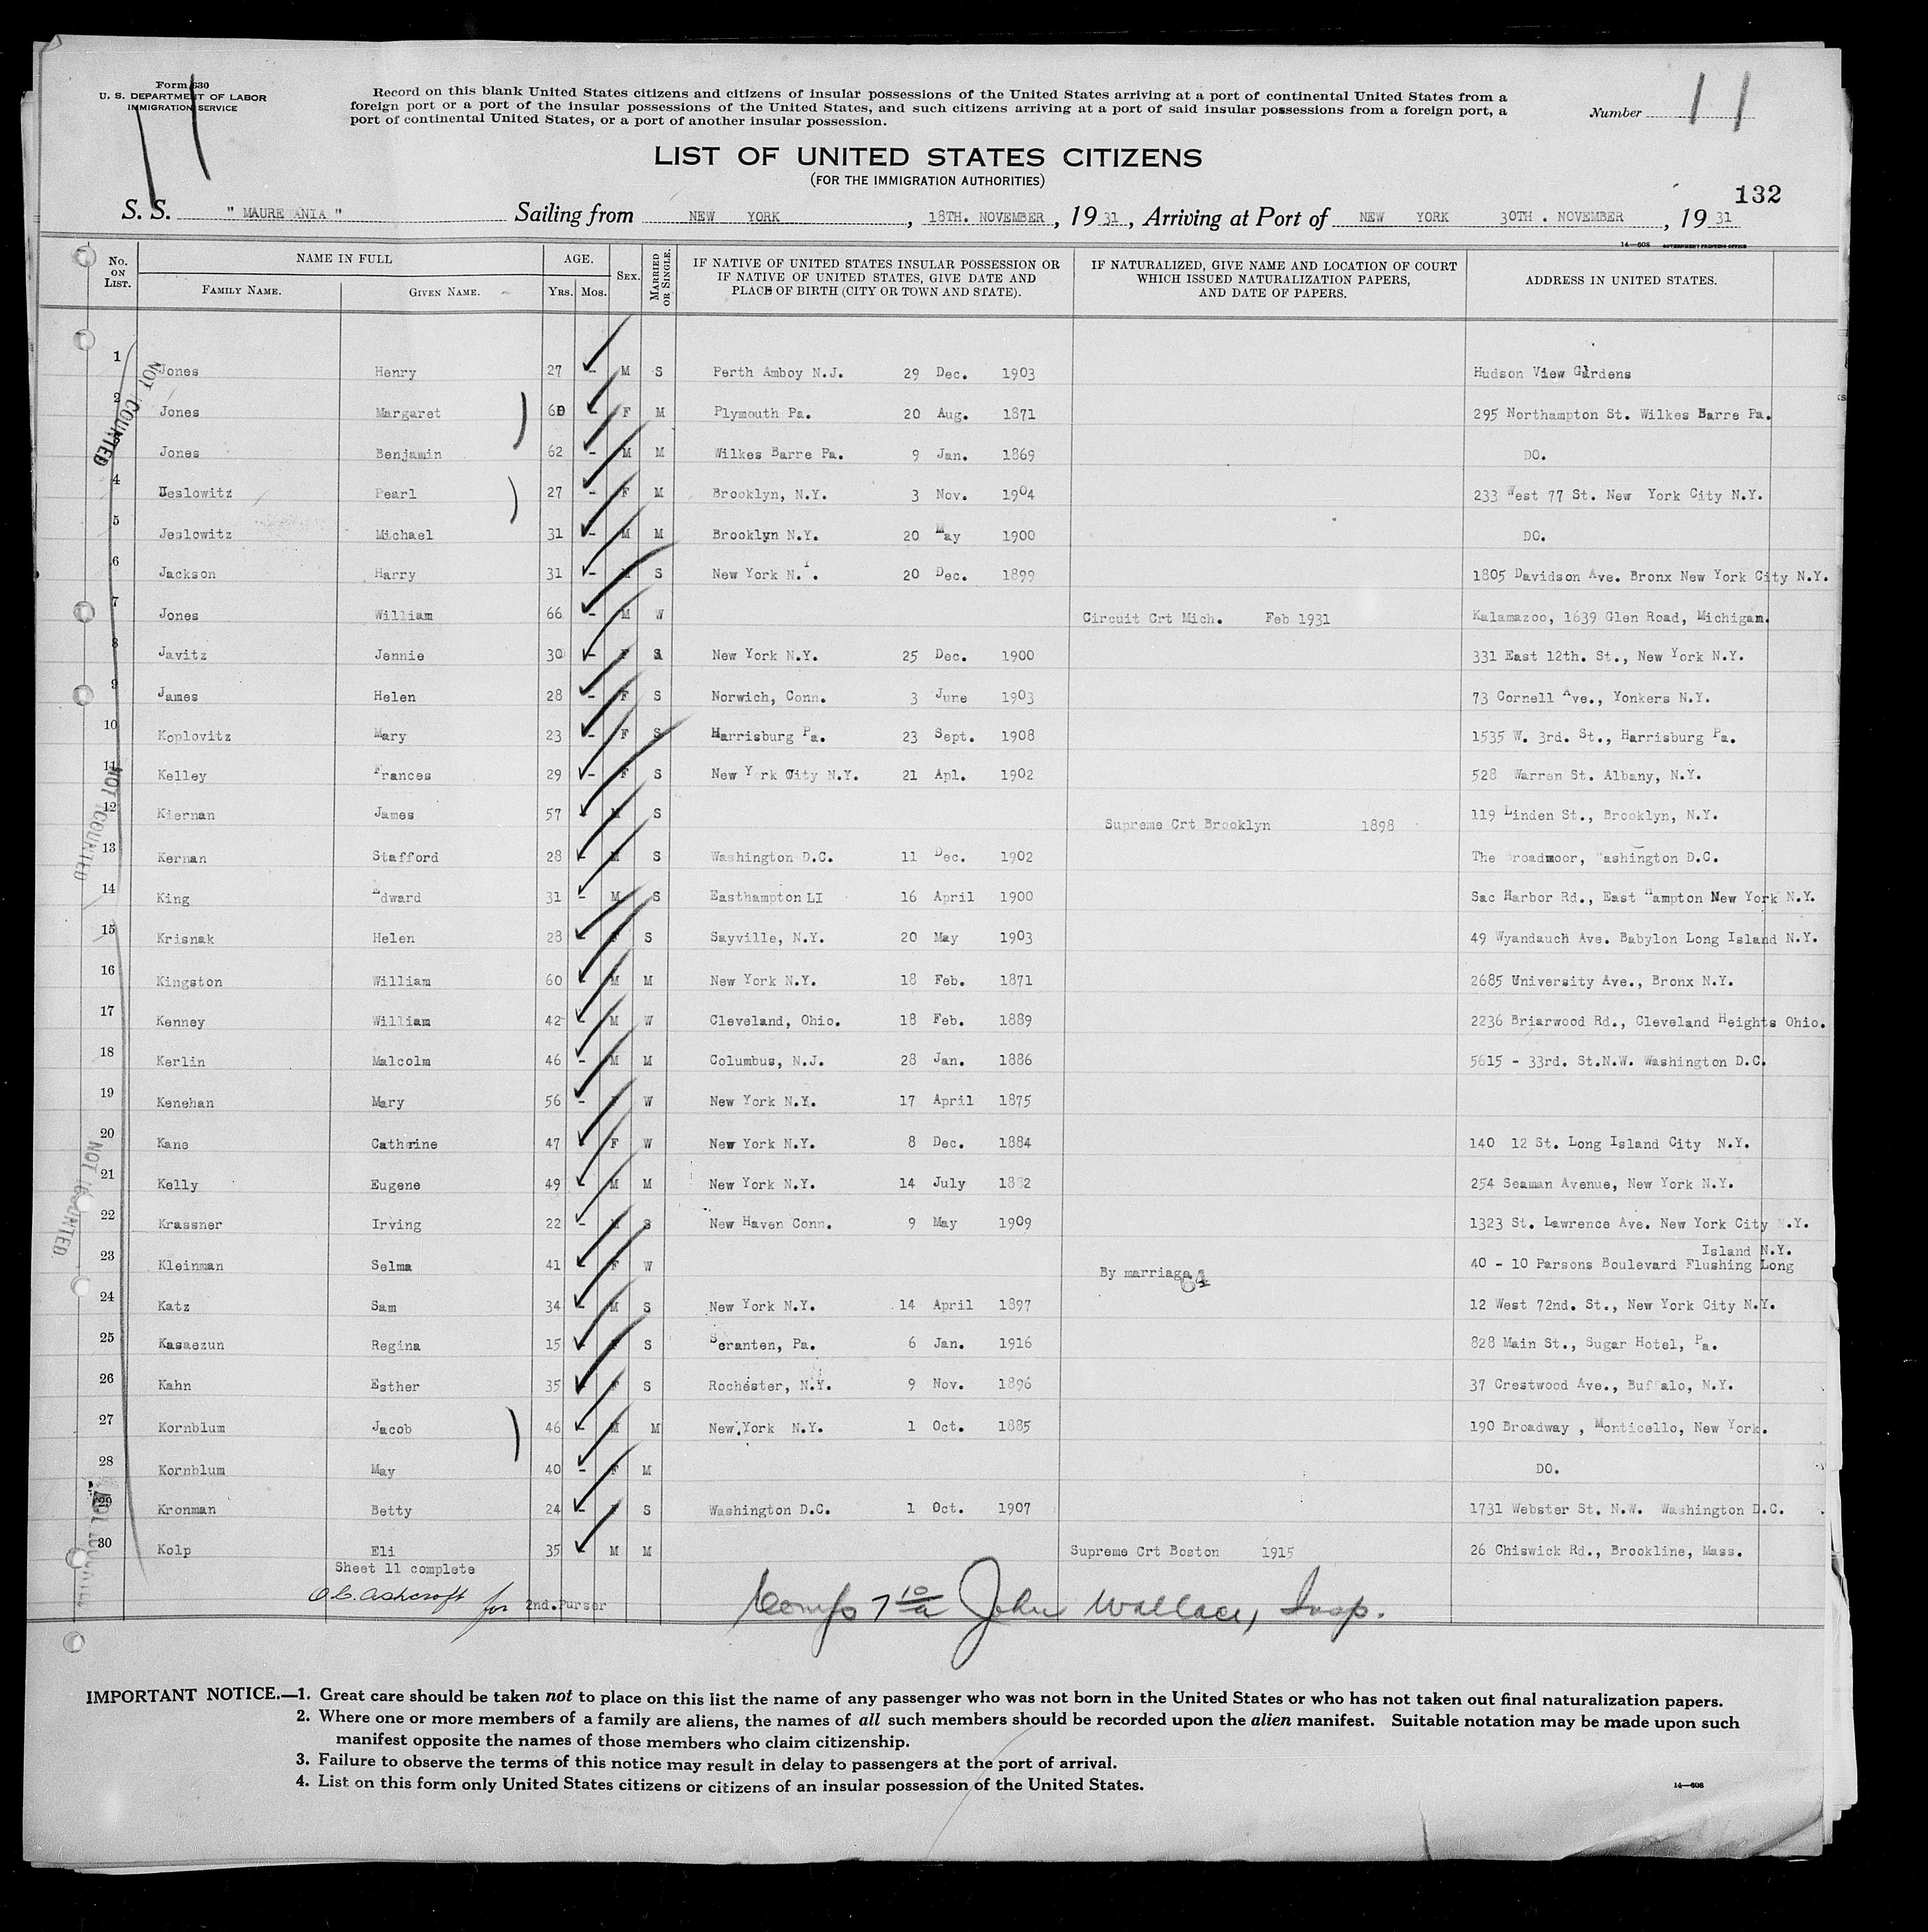 Form 630
U. S. DEPARTMENT OF LABOR
IMMIGRATION SERVICE
11
Record on this blank United States citizens and citizens of insular possessions of the United States arriving at a port of continental United States from a
foreign port or a port of the insular possessions of the United States, and such citizens arriving at a port of said insular possessions from a foreign port, a
port of continental United States, or a port of another insular possession.
Number 11
LIST OF UNITED STATES CITIZENS
(FOR THE IMMIGRATION AUTHORITIES)
132
S. S. " MAURETANIA " Sailing from NEW YORK, 18TH. NOVEMBER, 1931, Arriving at Port of NEW YORK 30TH. NOVEMBER, 1931
14—608 GOVERNMENT PRINTING OFFICE
No. ON LIST. NAME IN FULL FAMILY NAME. GIVEN NAME. AGE. Yrs. Mos. SEX. MARRIED OR SINGLE. IF NATIVE OF UNITED STATES INSULAR POSSESSION OR IF NATIVE OF UNITED STATES, GIVE DATE AND PLACE OF BIRTH (CITY OR TOWN AND STATE). IF NATURALIZED, GIVE NAME AND LOCATION OF COURT WHICH ISSUED NATURALIZATION PAPERS, AND DATE OF PAPERS. ADDRESS IN UNITED STATES.
1 Jones Henry 27 - M S Perth Amboy N.J. 29 Dec. 1903 Hudson View Gardens
2 Jones Margaret 60 - F M Plymouth Pa. 20 Aug. 1871 295 Northampton St. Wilkes Barre Pa.
Jones Benjamin 62 - M M Wilkes Barre Pa. 9 Jan. 1869 DO.
4 Jeslowitz Pearl 27 - F M Brooklyn, N.Y. 3 Nov. 1904 233 West 77 St. New York City N.Y.
5 Jeslowitz Michael 31 - M M Brooklyn N.Y. 20 May 1900 DO.
6 Jackson Harry 31 - M S New York N.Y. 20 Dec. 1899 1805 Davidson Ave. Bronx New York City N.Y.
7 Jones William 66 - M W Circuit Crt Mich. Feb 1931 Kalamazoo, 1639 Glen Road, Michigan.
8 Javitz Jennie 30 - F S New York N.Y. 25 Dec. 1900 331 East 12th. St., New York N.Y.
9 James Helen 28 - F S Norwich, Conn. 3 June 1903 73 Cornell Ave., Yonkers N.Y.
10 Koplovitz Mary 23 - F S Harrisburg Pa. 23 Sept. 1908 1535 W. 3rd. St., Harrisburg Pa.
11 Kelley Frances 29 - F S New York City N.Y. 21 Apl. 1902 528 Warren St. Albany, N.Y.
12 Kiernan James 57 M S Supreme Crt Brooklyn 1898 119 Linden St., Brooklyn, N.Y.
13 Kernan Stafford 28 - M S Washington D.C. 11 Dec. 1902 The Broadmoor, Washington D.C.
14 King Edward 31 - M S Easthampton LI 16 April 1900 Sac Harbor Rd., East Hampton New York N.Y.
15 Krisnak Helen 28 - F S Sayville, N.Y. 20 May 1903 49 Wyandauch Ave. Babylon Long Island N.Y.
16 Kingston William 60 - M M New York N.Y. 18 Feb. 1871 2685 University Ave., Bronx N.Y.
17 Kenney William 42 - M W Cleveland, Ohio. 18 Feb. 1889 2236 Briarwood Rd., Cleveland Heights Ohio.
18 Kerlin Malcolm 46 - M M Columbus, N.J. 28 Jan. 1886 5615 - 33rd. St.N.W. Washington D.C.
19 Kenehan Mary 56 - F W New York N.Y. 17 April 1875
20 Kane Catherine 47 - F W New York N.Y. 8 Dec. 1884 140 12 St. Long Island City N.Y.
21 Kelly Eugene 49 - M M New York N.Y. 14 July 1882 254 Seaman Avenue, New York N.Y.
22 Krassner Irving 22 - M S New Haven Conn. 9 May 1909 1323 St. Lawrence Ave. New York City N.Y.
Island N.Y.
23 Kleinman Selma 41 - F W By marriage 40 - 10 Parsons Boulevard Flushing Long
24 Katz Sam 34 - M S New York N.Y. 14 April 1897 12 West 72nd. St., New York City N.Y.
25 Kasaezun Regina 15 - F S Scranten, Pa. 6 Jan. 1916 828 Main St., Sugar Hotel, Pa.
26 Kahn Esther 35 - F S Rochester, N.Y. 9 Nov. 1896 37 Crestwood Ave., Buffalo, N.Y.
27 Kornblum Jacob 46 - M M New York N.Y. 1 Oct. 1885 190 Broadway , Monticello, New York.
28 Kornblum May 40 - F M DO.
29 Kronman Betty 24 - F S Washington D.C. 1 Oct. 1907 1731 Webster St. N.W. Washington D.C.
30 Kolp Eli 35 - M M Supreme Crt Boston 1915 26 Chiswick Rd., Brookline, Mass.
NOT COUNTED
NOT COUNTED
NOT COUNTED
Sheet 11 complete
O.C. Ashcroft for 2nd. Purser
John Wallace, Insp.
IMPORTANT NOTICE.—1. Great care should be taken not to place on this list the name of any passenger who was not born in the United States or who has not taken out final naturalization papers.
2. Where one or more members of a family are aliens, the names of all such members should be recorded upon the alien manifest. Suitable notation may be made upon such
manifest opposite the names of those members who claim citizenship.
3. Failure to observe the terms of this notice may result in delay to passengers at the port of arrival.
4. List on this form only United States citizens or citizens of an insular possession of the United States.
14—608